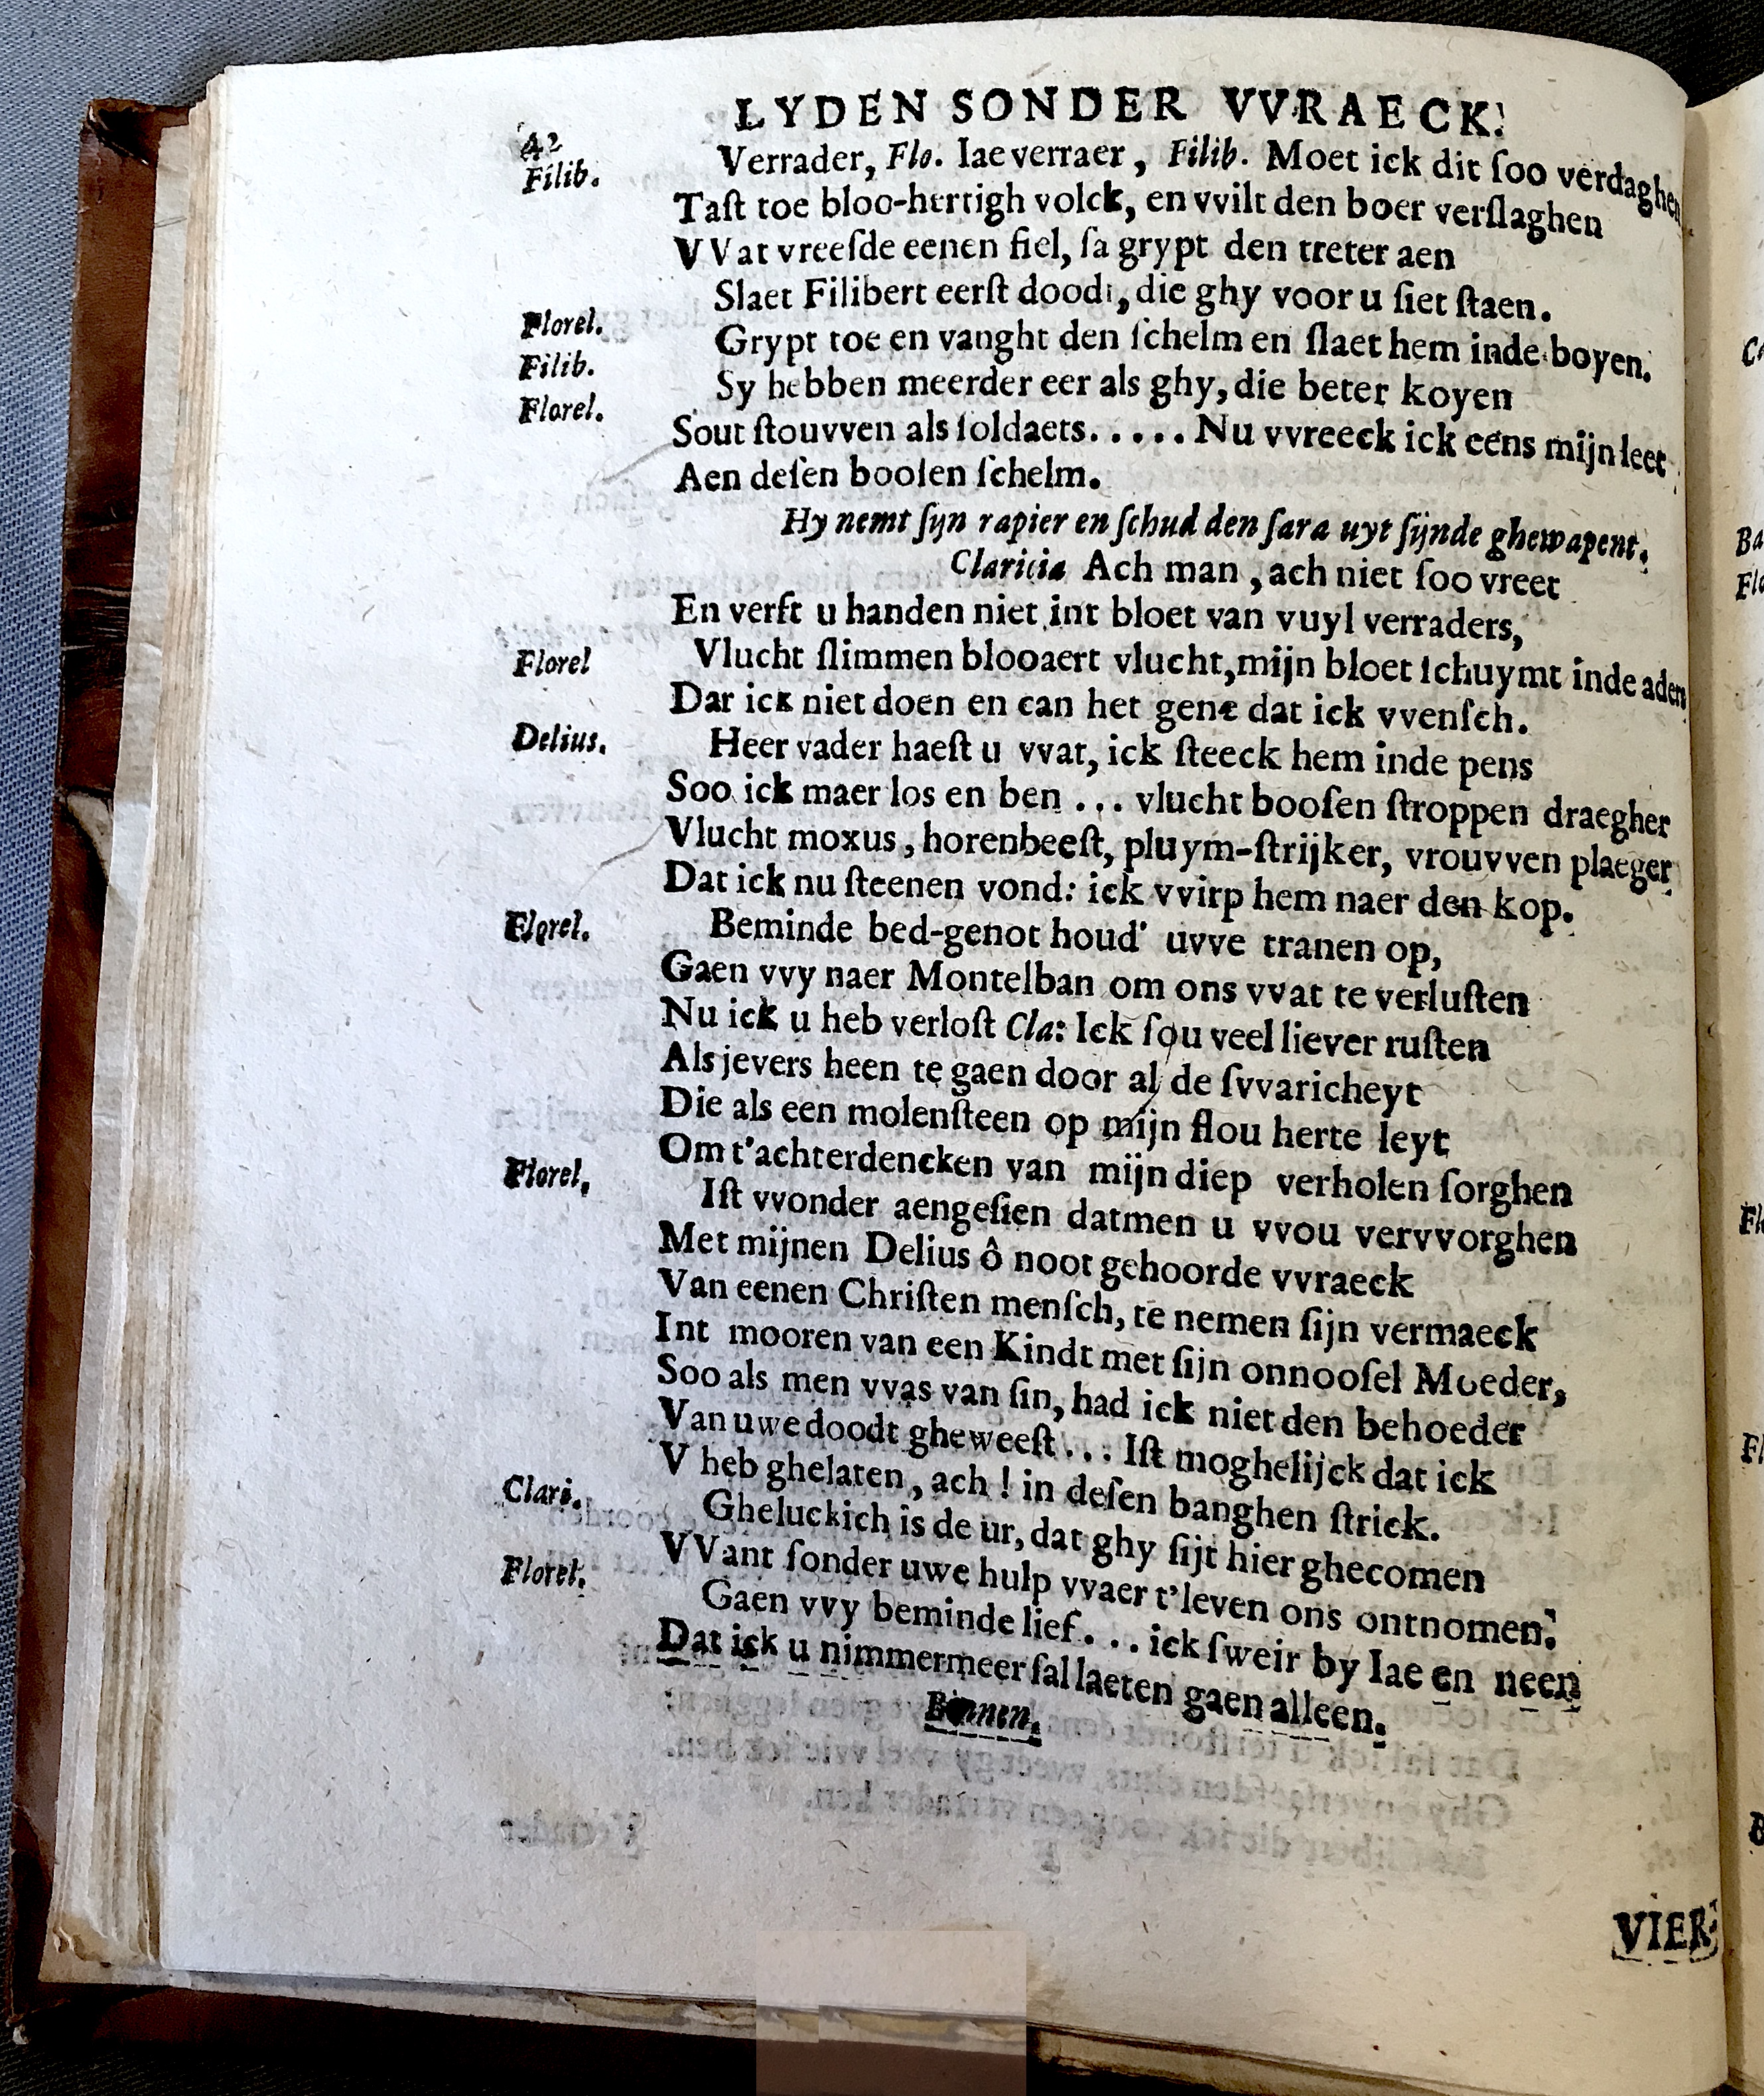 LYDEN SONDER VVRAECK.
42
Filib. Verrader, Flo. Iae verraer, Filib. Moet ick dit ſoo verdaghen
Taſt toe bloo-hertigh volck, en vvilt den boer verſlaghen
VVat vreeſde eenen fiel, ſa grypt den treter aen
Slaet Filibert eerſt doodt, die ghy voor u ſiet ſtaen.
Florel. Grypt toe en vanght den ſchelm en ſlaet hem inde boyen.
Filib. Sy hebben meerder eer als ghy, die beter koyen
Florel. Sout ſtouvven als ſoldaets..... Nu vvreeck ick eens mijn leet
Aen deſen booſen ſchelm.
Hy nemt ſyn rapier en ſchud den ſara uyt ſijnde ghewapent.
Claricia Ach man, ach niet ſoo vreet
En verft u handen niet int bloet van vuyl verraders,
Florel Vlucht ſlimmen blooaert vlucht, mijn bloet ſchuymt inde aders
Dar ick niet doen en can het gene dat ick vvenſch.
Delius. Heer vader haeſt u vvat, ick ſteeck hem inde pens
Soo ick maer los en ben ... vlucht booſen ſtroppen draegher
Vlucht moxus, horenbeeſt, pluym-ſtrijker, vrouvven plaeger
Dat ick nu ſteenen vond: ick vvirp hem naer den kop.
Florel. Beminde bed-genot houd' uvve tranen op,
Gaen vvy naer Montelban om ons vvat te verluſten
Nu ick u heb verloſt Cla: Ick ſou veel liever ruſten
Als jevers heen te gaen door al de ſvvaricheyt
Die als een molenſteen op mijn flou herte leyt
Om t'achterdencken van mijn diep verholen ſorghen
Florel. Iſt vvonder aengeſien datmen u vvou vervvorghen
Met mijnen Delius ô noot gehoorde vvraeck
Van eenen Chriſten menſch, te nemen ſijn vermaeck
Int mooren van een Kindt met ſijn onnooſel Moeder,
Soo als men vvas van ſin, had ick niet den behoeder
Van uwe doodt gheweeſt... Iſt moghelijck dat ick
V heb ghelaten, ach! in deſen banghen ſtrick.
Clari. Gheluckich is de ur, dat ghy ſijt hier ghecomen
VVant ſonder uwe hulp vvaer t'leven ons ontnomen.
Florel. Gaen vvy beminde lief... ick ſweir by Iae en neen
Dat ick u nimmermeer ſal laeten gaen alleen.
Binnen.
VIER-